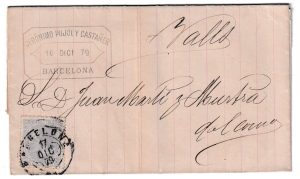 GERÓNIMO PUJOL Y CASTAÑER
16 DIC! 79
BARCELONA
Valls
S. D. Juan Martí y
del comº
BARCELONA
17
DIC
79